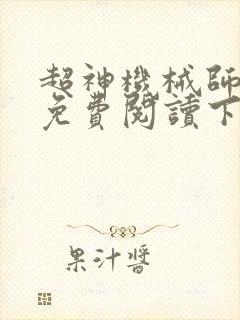 超神機械師
免費閱讀下
果汁醬